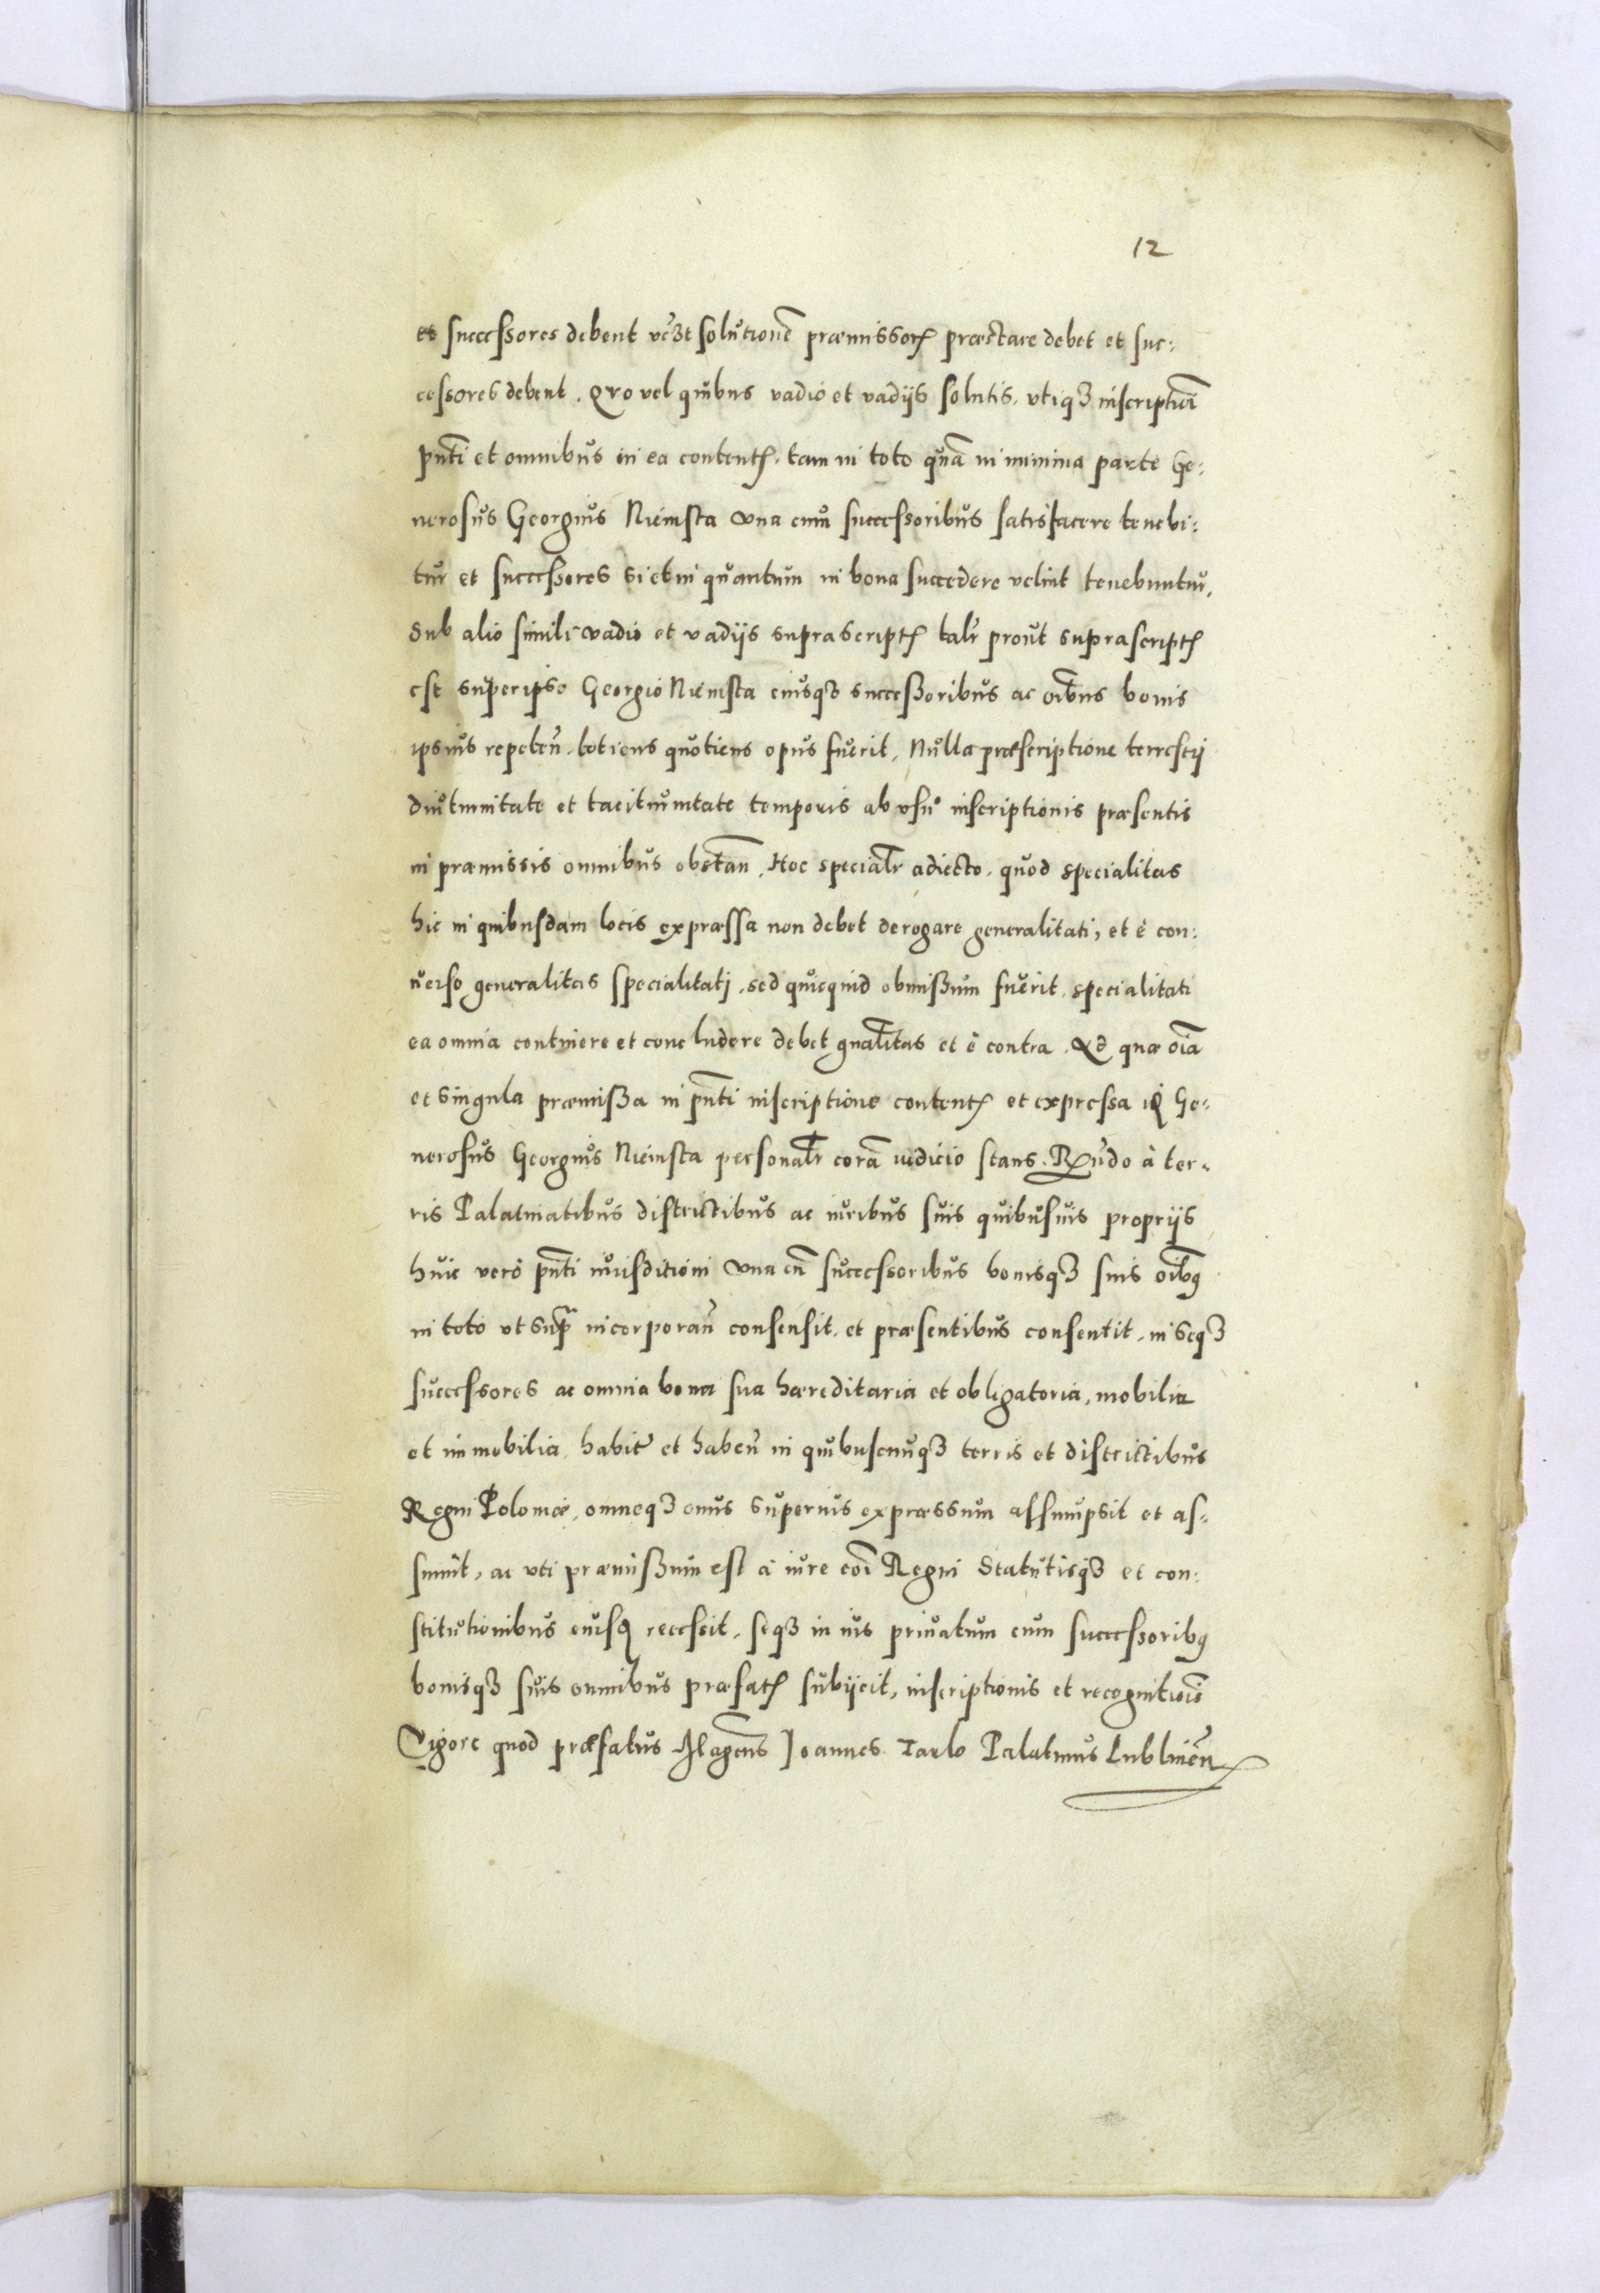 12
et successores debent verẽ solutionẽ præmissorꝝ præstare debet et suc:
cessores debent. Quo vel quibus vadio et vadijs solutis, utiqꝫ inscriptiõi
pñti et omnibus in ea contentꝭ, tam in toto quã in minima parte Ge:
nerosus Georgius Niemsta una cum successoribus satisfacere tenebi:
tur et successores si et in quantum in bona succedere velint tenebuntur,
Sub alio simili vadio et vadijs suprascriptꝭ talr̃ prout suprascriptꝭ
est super ipso Georgio Niemsta eiusqꝫ successoribus ac oĩbus bonis
ipsius repeteñ. totiens quotiens opus fuerit, Nulla præscriptione terrestrj
diuturnitate et taciturnitate temporis ab usu inscriptionis præsentis
in præmissis omnibus obstañ, Hoc specialr̃ adiecto, quod specialitas
hic in quibusdam locis expræssa non debet derogare generalitati, et è con:
uerso generalitas specialitatj, sed quicquid obmissum fuerit specialitati
ea omnia continere et concludere debet gñalitas et è contra. Qd quæ oĩa
et singula præmissa in pñti inscriptione contentꝭ et expressa id Ge:
nerosus Georgius Niemsta personalr̃ corã iudicio stans. Recedendo à ter:
ris Palatinatibus districtibus ac iuribus suis quibusuis proprijs
huic verò pñti iurisditioni una cũ successoribus bonisqꝫ suis oĩbꝰ
in toto ut supra incorporañ consensit, et præsentibus consentit, in seqꝫ
successores ac omnia bona sua hæreditaria et obligatoria, mobilia
et immobilia, habitꝭ et habeñ in quibuscunqꝫ terris et districtibus
Regni Poloniæ, omneqꝫ onus superius expræssum assumpsit et as:
sumit, ac uti præmissum est à iure cõi Regni Statutisqꝫ et con:
stitutionibus eiusꝗ recessit, seqꝫ in ius priuatum cum successoribꝰ
bonisqꝫ suis omnibus præfatꝭ subijcit, inscriptionis et recognitiõis
Vigore quod præfatus Magcus Ioannes Tarlo Palatinus Lublineñ